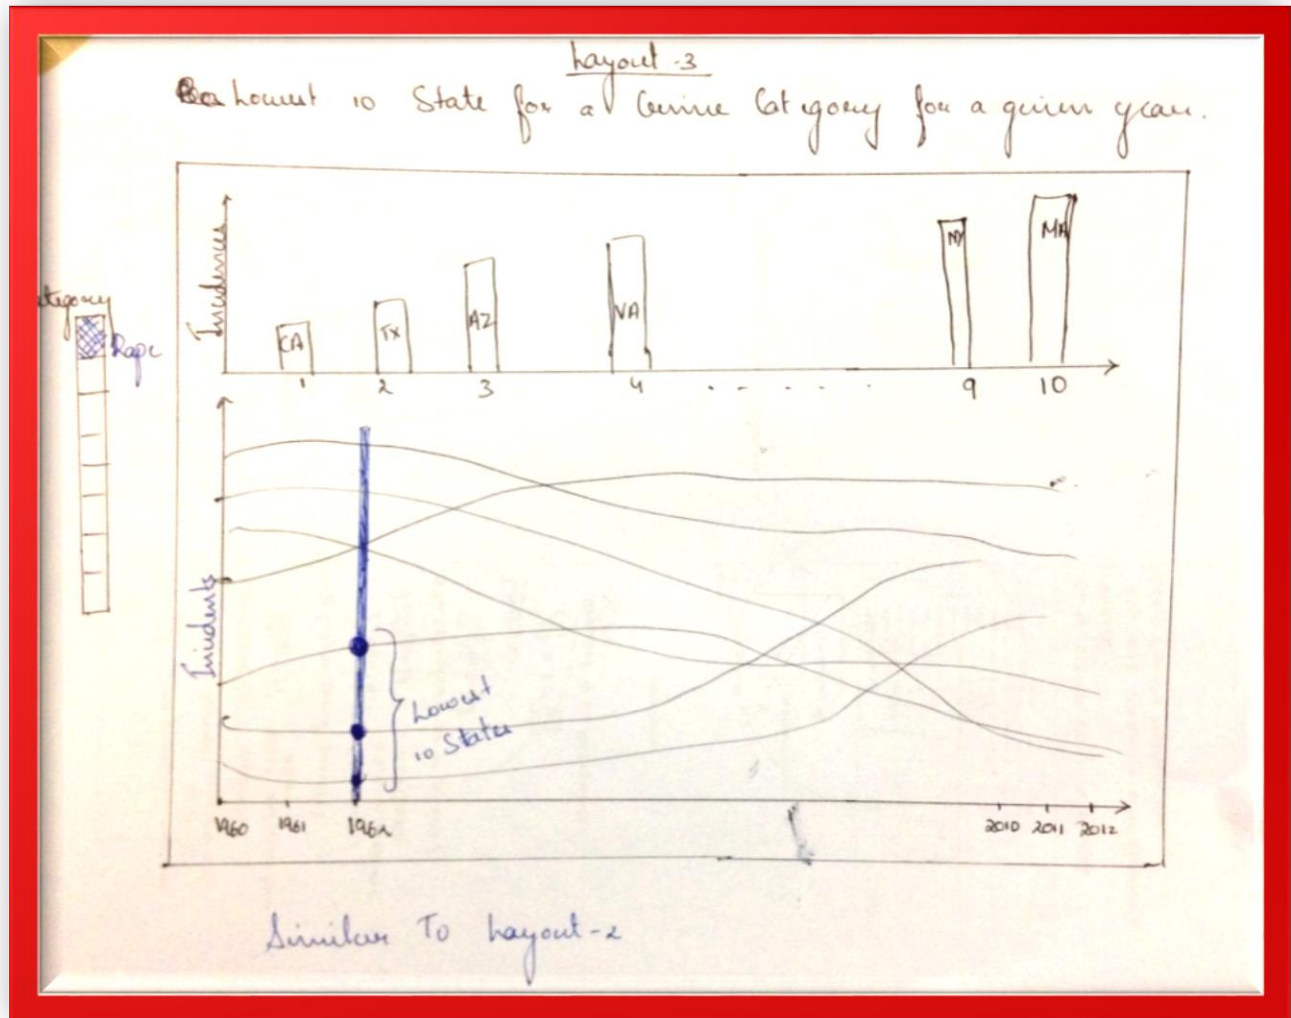 Layout-3
Lowest 10 State for a Crime Category for a given year.
Incidences
CA
TX
AZ
VA
NY
MA
1 2 3 4 - - - - . 9 10
ategory
Rape
Incidents
Lowest
10 States
1960 1961 1962 2010 2011 2012
Similar To Layout-2